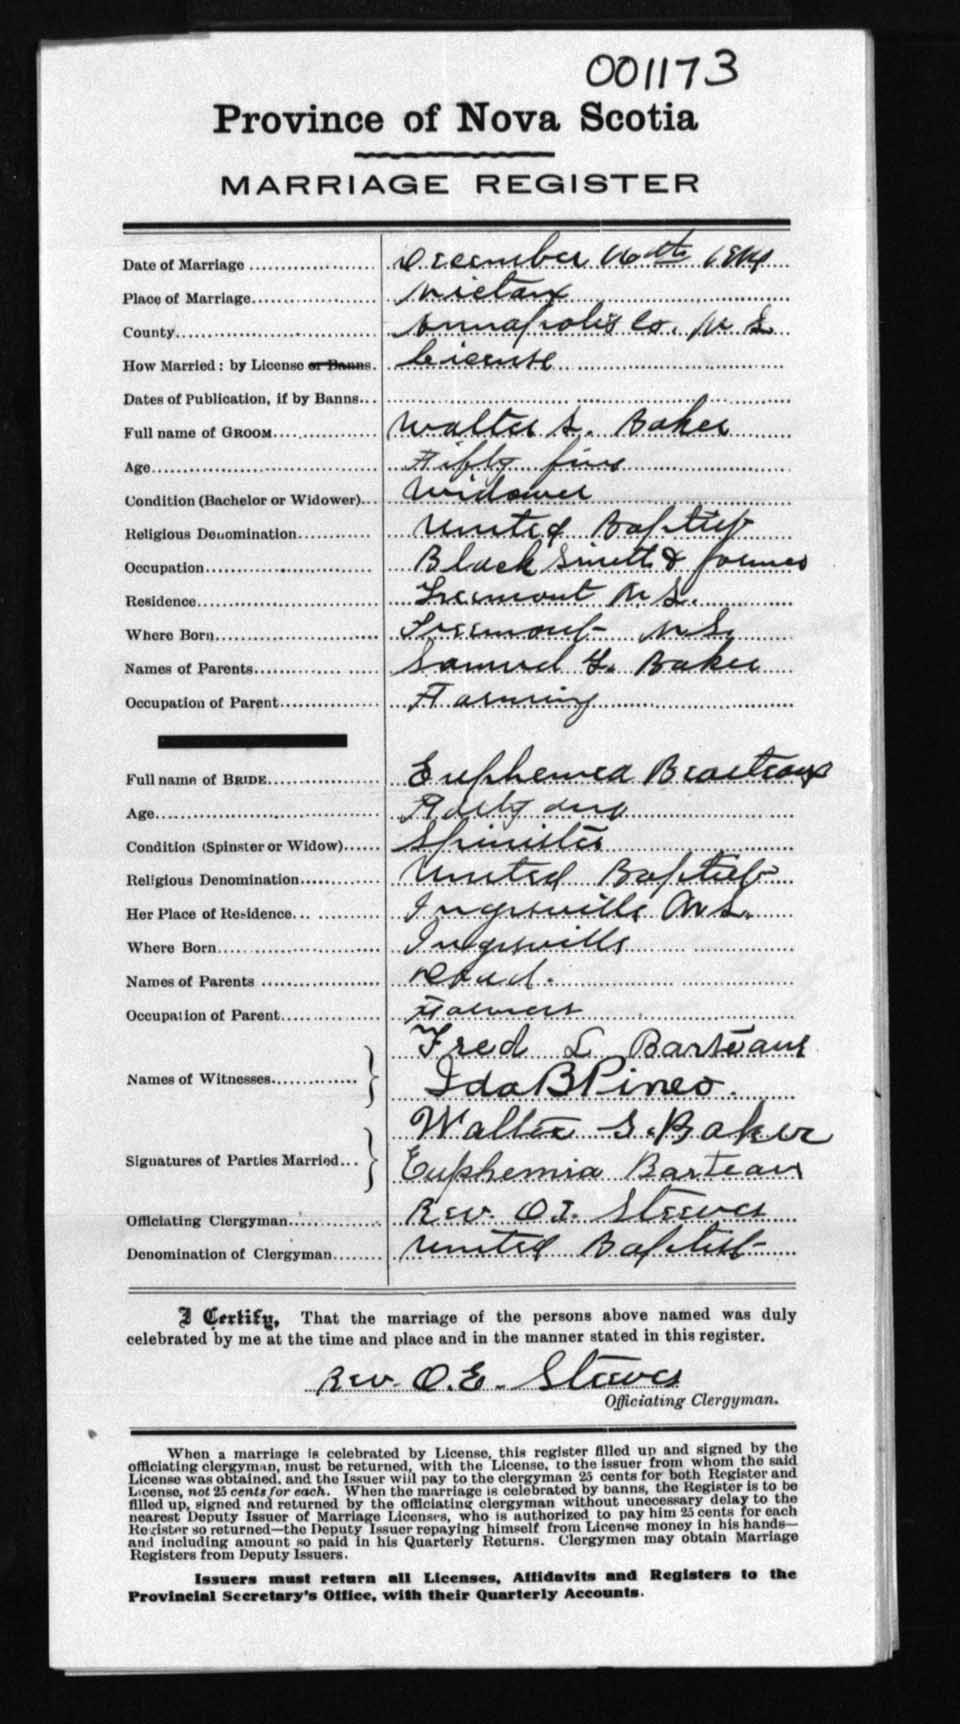 001173
Province of Nova Scotia
MARRIAGE REGISTER
Date of Marriage December 16th 1914
Place of Marriage Nictaux
County Annapolis Co. N S
How Married: by License or Banns. License
Dates of Publication, if by Banns
Full name of GROOM Walter S. Baker
Age Fifty five
Condition (Bachelor or Widower) Widower
Religious Denomination United Baptist
Occupation Black Smith & farmer
Residence Tremont N.S.
Where Born Tremont N.S.
Names of Parents Samuel Baker
Occupation of Parent Farming
Full name of BRIDE Euphemea Bearteaux
Age Forty one
Condition (Spinster or Widow) Spinster
Religious Denomination United Baptist
Her Place of Residence Ingrsville N.S.
Where Born Ingrsville
Names of Parents Dead.
Occupation of Parent Farmers
Names of Witnesses Fred L Barteaux
Ida B Pineo.
Signatures of Parties Married Walter S. Baker
Euphemia Barteaux
Officiating Clergyman Rev. O.E. Steeves
Denomination of Clergyman United Baptist
I Certify, That the marriage of the persons above named was duly
celebrated by me at the time and place and in the manner stated in this register.
Rev. O.E. Steeves
Officiating Clergyman.
When a marriage is celebrated by License, this register filled up and signed by the
officiating clergyman, must be returned, with the License, to the issuer from whom the said
License was obtained, and the Issuer will pay to the clergyman 25 cents for both Register and
License, not 25 cents for each. When the marriage is celebrated by banns, the Register is to be
filled up, signed and returned by the officiating clergyman without unecessary delay to the
nearest Deputy Issuer of Marriage Licenses, who is authorized to pay him 25 cents for each
Register so returned—the Deputy Issuer repaying himself from License money in his hands—
and including amount so paid in his Quarterly Returns. Clergymen may obtain Marriage
Registers from Deputy Issuers.
Issuers must return all Licenses, Affidavits and Registers to the
Provincial Secretary's Office, with their Quarterly Accounts.